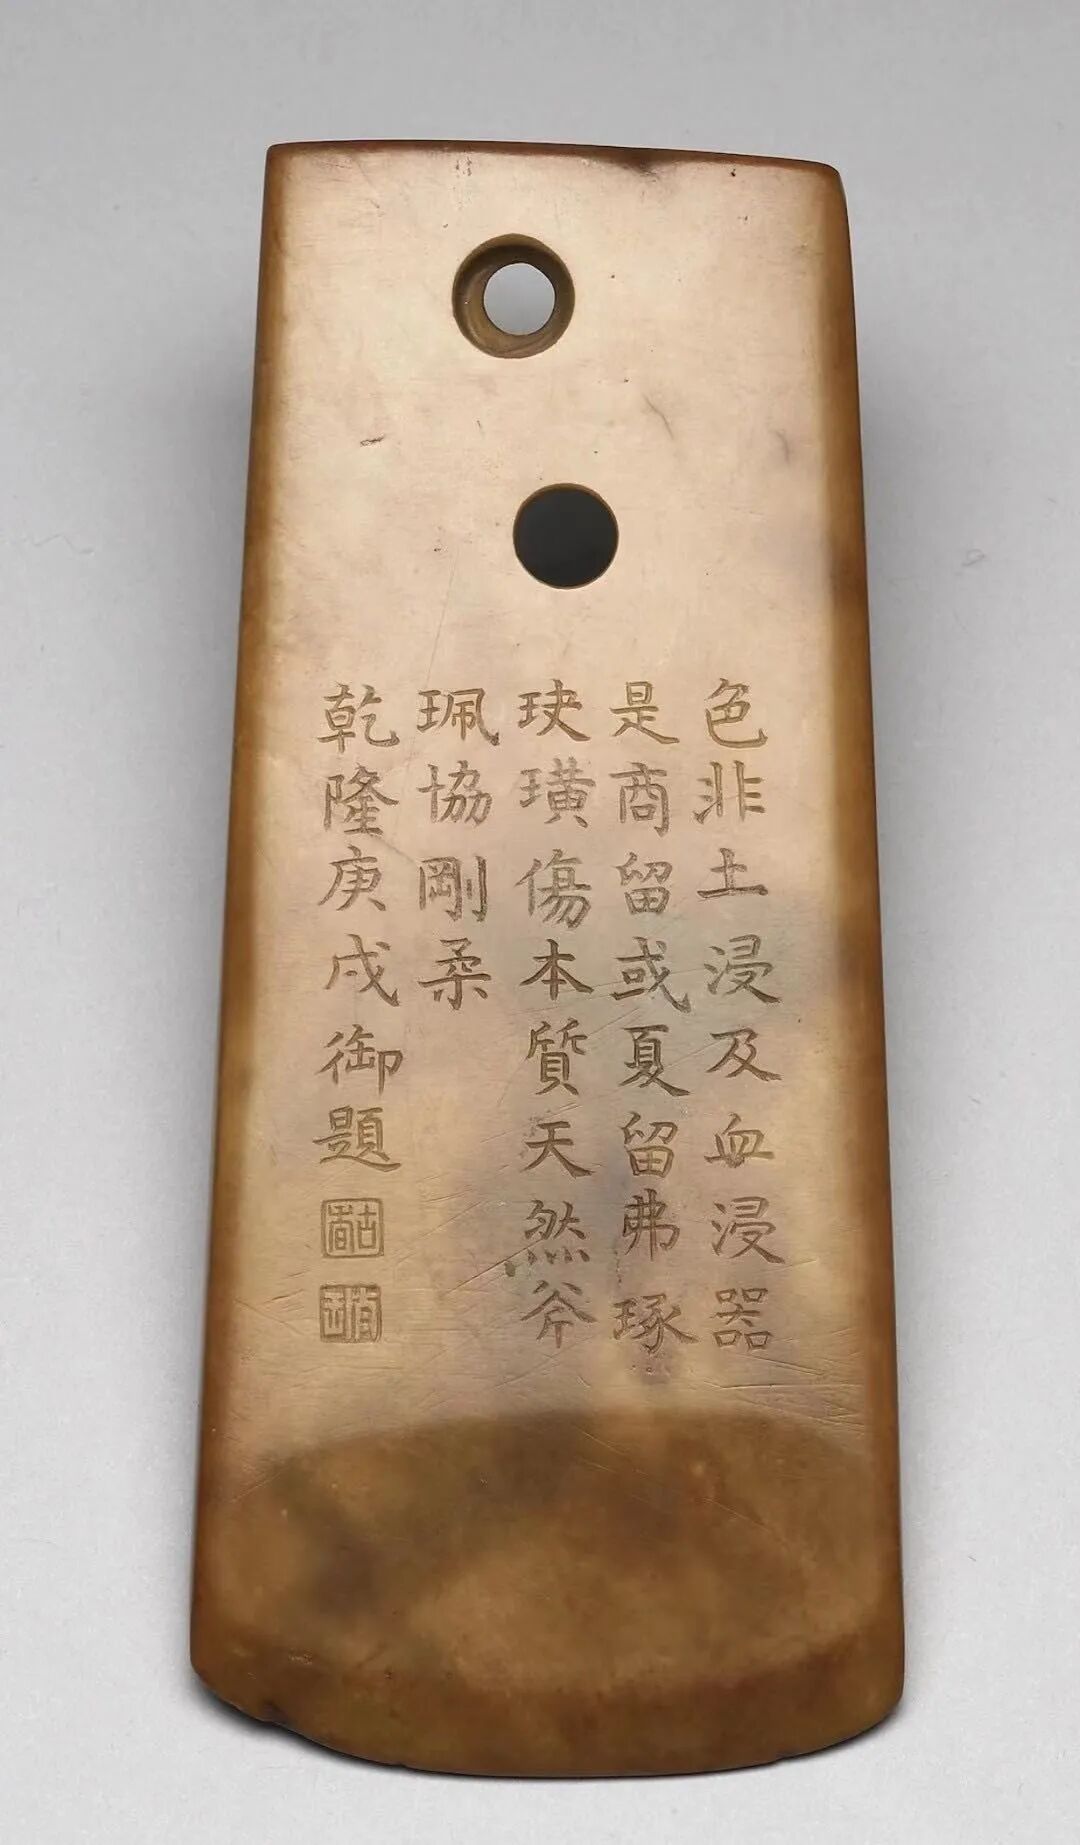 色非土浸及血浸器
是商留或夏留弗琢
玦璜傷本質天然斧
珮協剛柔
乾隆庚戌御題
古香